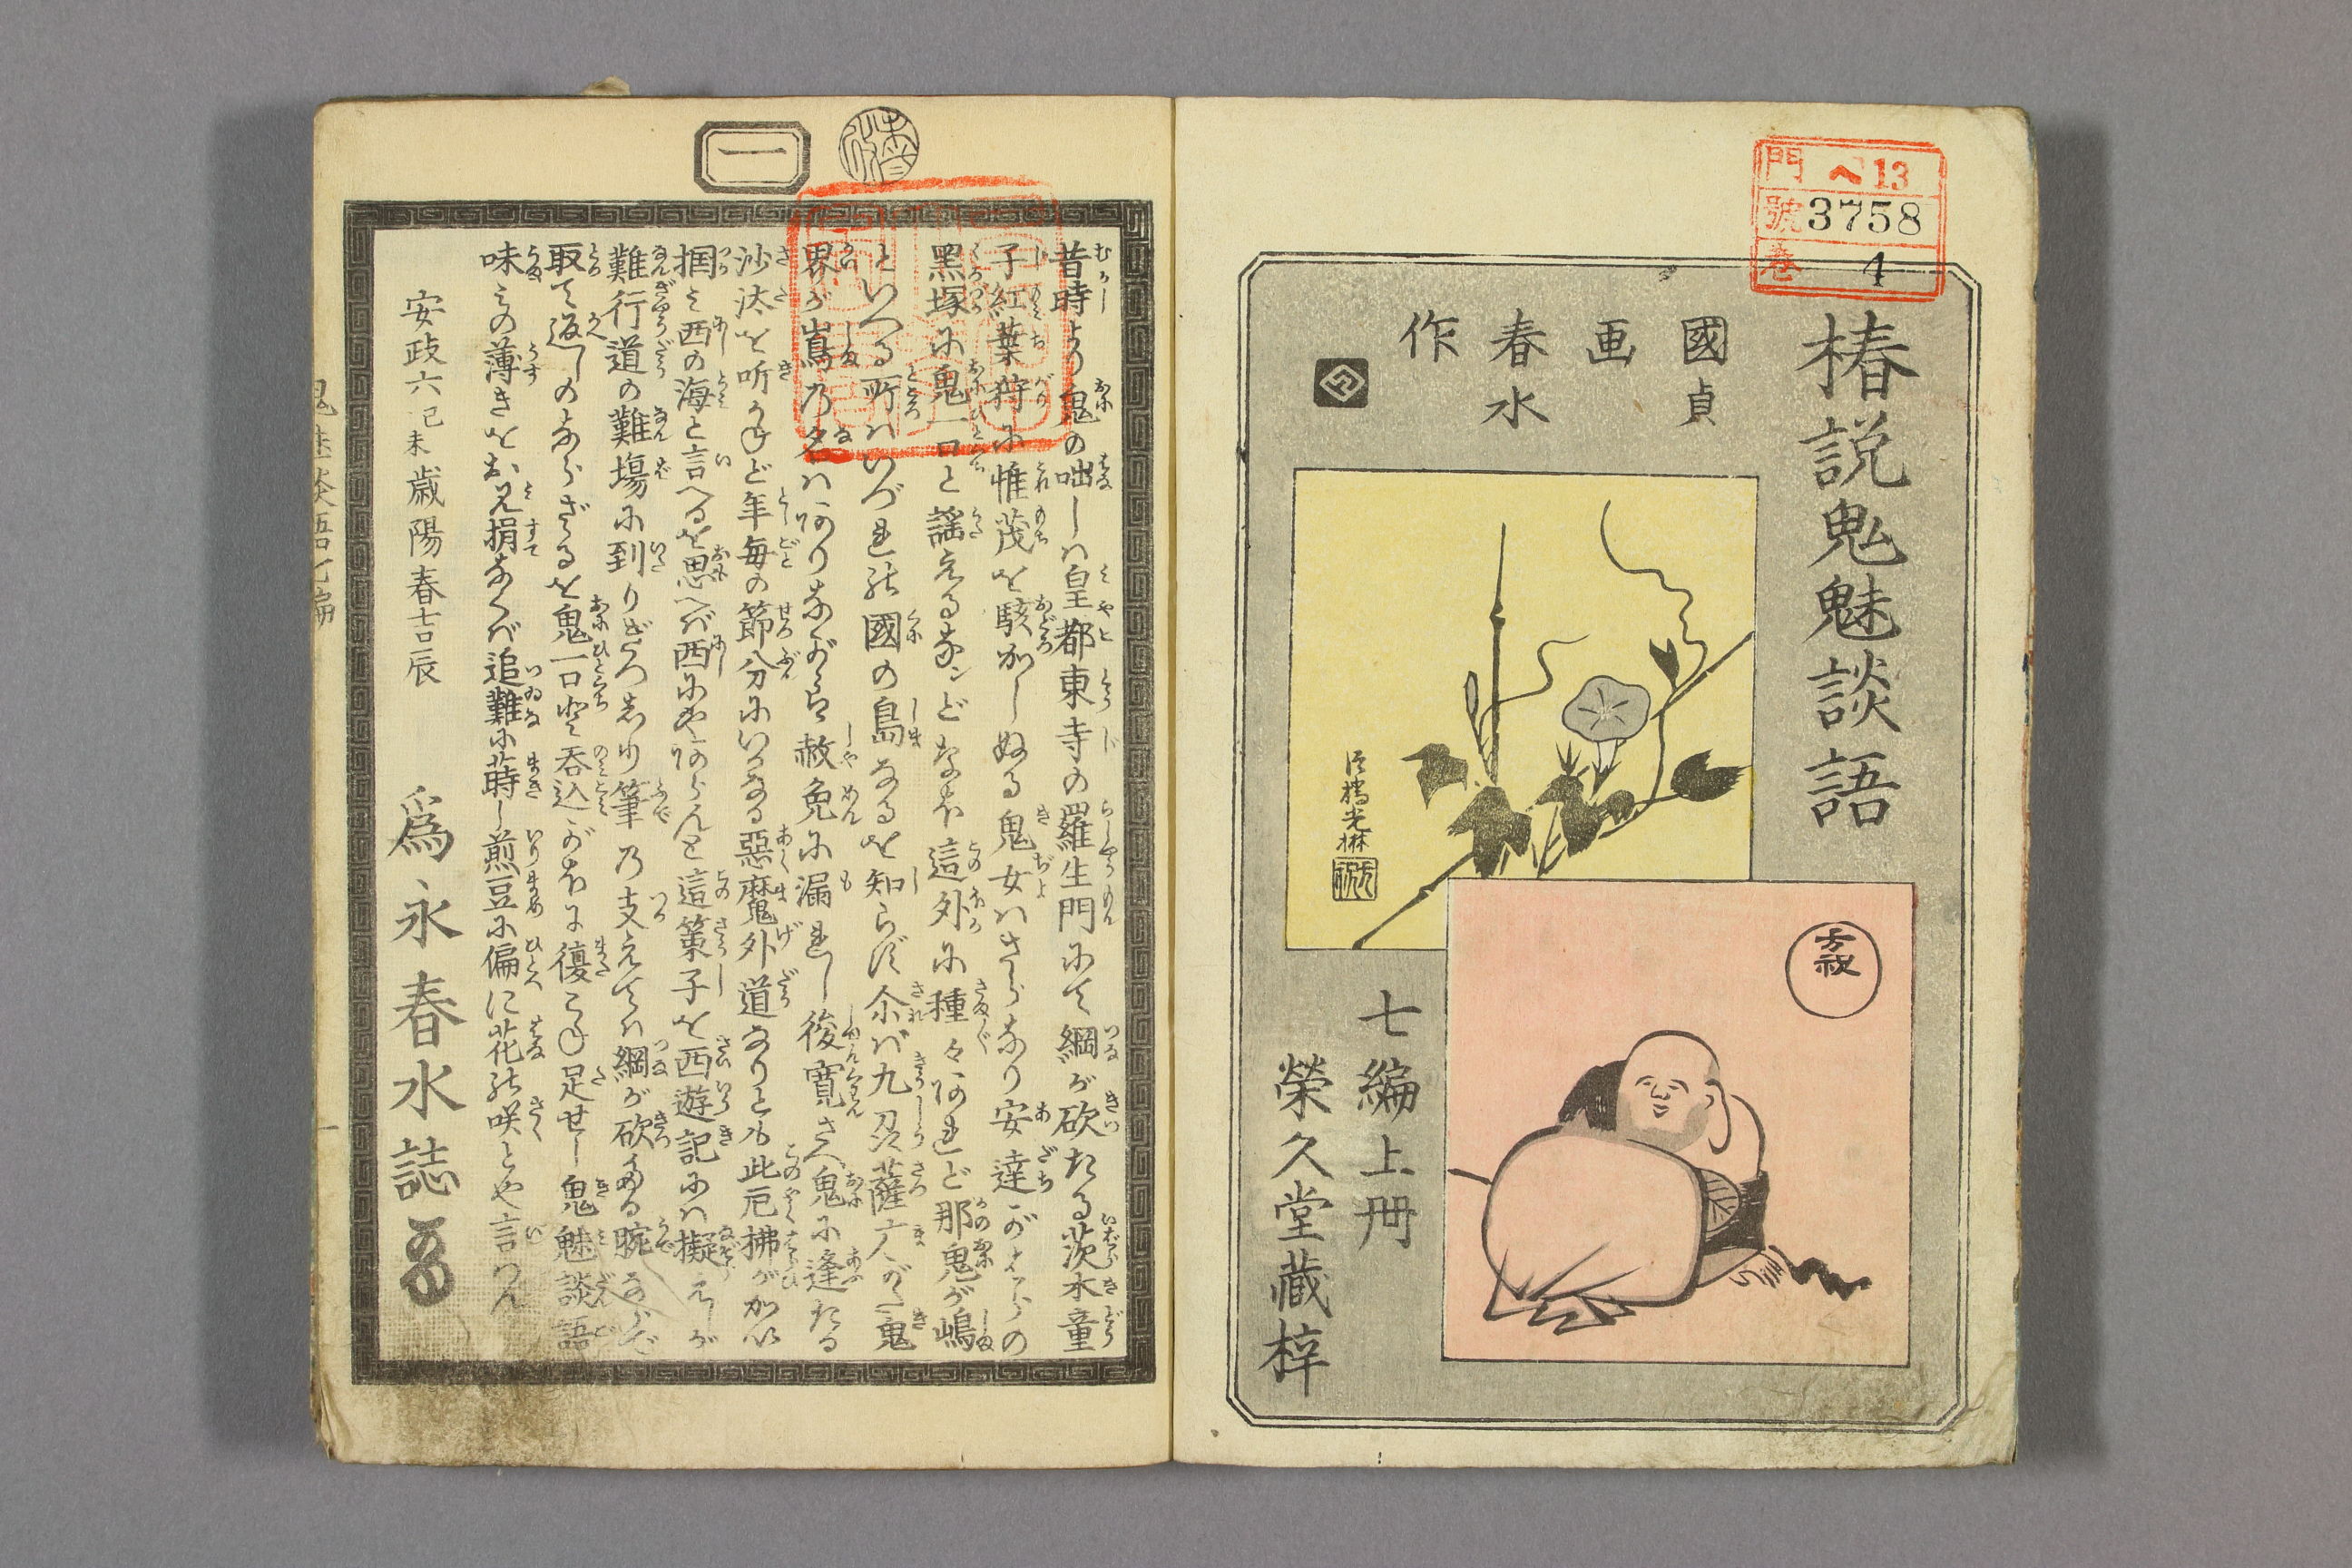 門 ヘ13
號 3758
巻 4
椿説鬼魅談語
國貞
画
春水
作
法橋光琳
方祝
七編上冊
榮久堂蔵梓
一
昔時より鬼の咄しハ皇都東寺の羅生門にて綱が砍たる茨木童
子紅葉狩に惟茂を駭かしぬる鬼女ハさらなり安達がはらの
黒塚に鬼一口と謡えるなンどなほ這外に種々あれど那鬼が嶋
といへる所ハいづれの國の島なるを知らず尒ば九刕薩广がた鬼
界が嶌乃名ハありながら赦免に漏れし俊寛さへ鬼に逢たる
沙汰を听かねど年毎の節分にいかなる悪魔外道なりとも此厄拂が
掴み西の海と言へるを思へば西にやあらんと這策子を西遊記にハ擬えしが
難行道の難場に到りぎつしり筆乃支えてハ綱が砍たる腕ならで
取て返しのならざるを鬼一口に呑込がほに復こね足せし鬼魅談語
味ひの薄きをお見捐なくば追難に蒔し煎豆に偏に花の咲とや言つん
安政六己未歳陽春吉辰
爲永春水誌
鬼魅談語七編
一